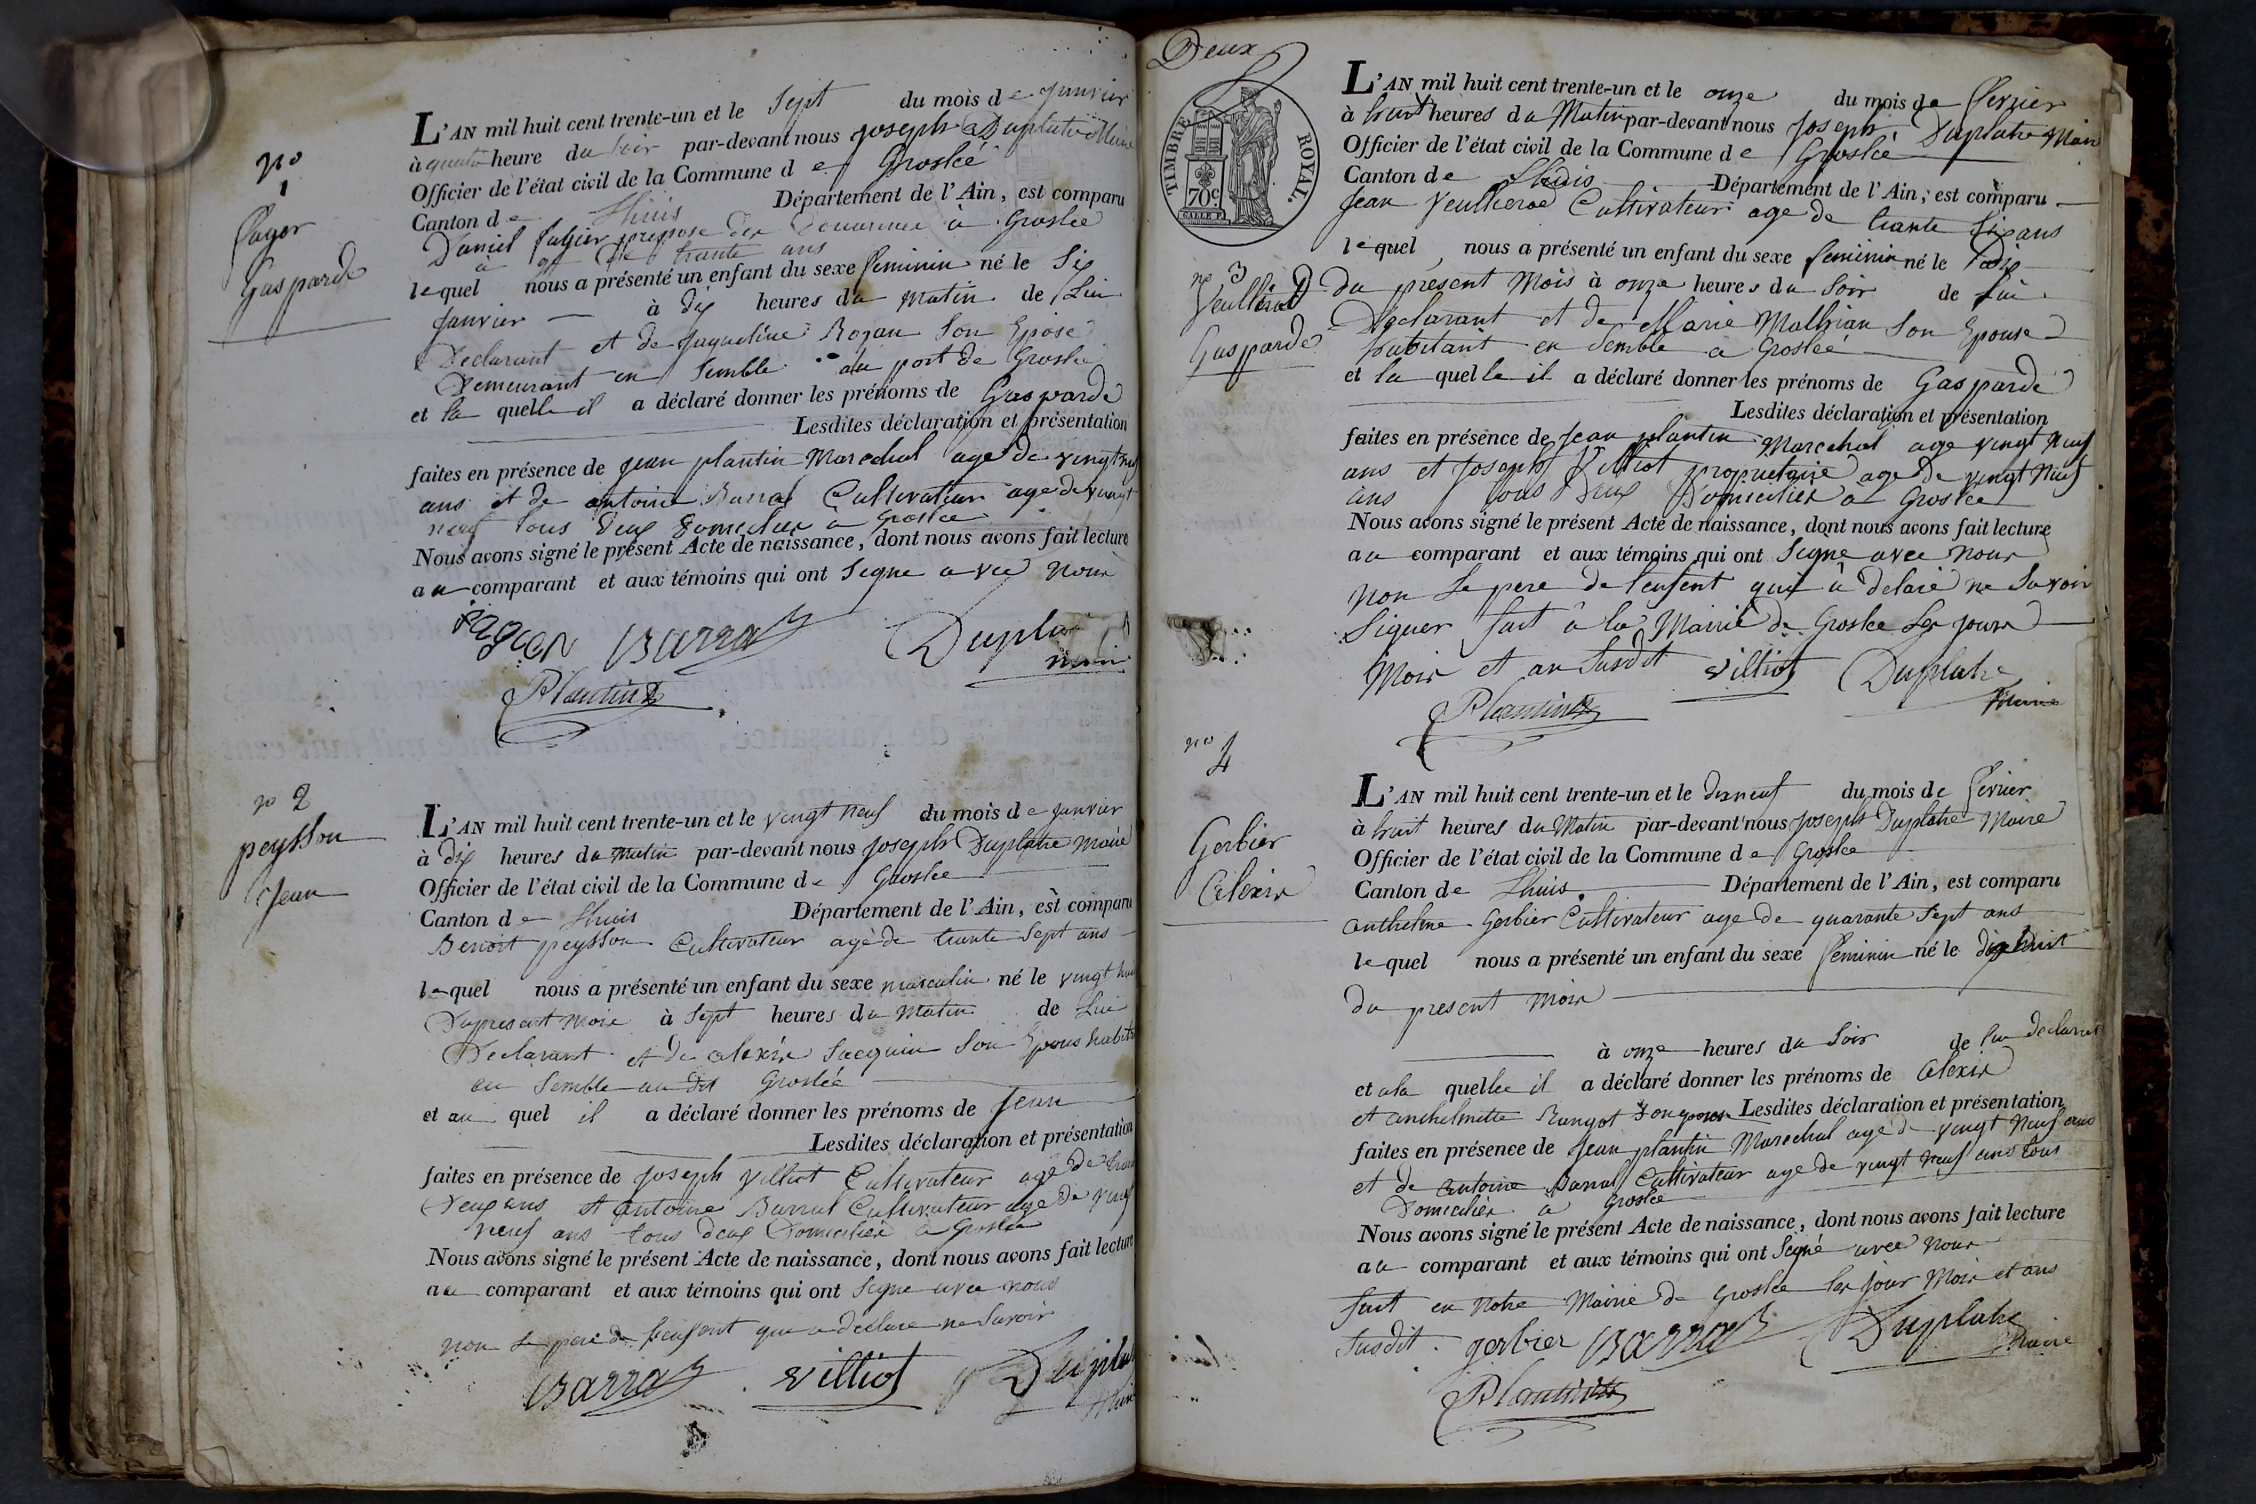 no
1
Gasparde
L'AN mil huit cent trente-un et le Sept du mois de Janvier
à quatre heure du soir par-devant nous joseph Duplatre Maire
Officier de l'état civil de la Commune de Groslée
Canton de Lhuis Département de l'Ain, est comparu
Daniel préposé des Douannes à Groslée
agé de trante ans
lequel nous a présenté un enfant du sexe feminin né le Six
Janvier à dix heures du Matin de Lui
Déclarant et de Jaqueline Rogan Son Epose
Demeurant en Semble au port de Groslée
et la quelle il a déclaré donner les prénoms de Gasparde
Lesdites déclaration et présentation
faites en présence de jean plantin Marechal agé de vingt neuf
ans et de antoine Barral Cultivateur agé de vingt
neuf tous deux domicilies a Groslée
Nous avons signé le présent Acte de naissance, dont nous avons fait lecture
au comparant et aux témoins qui ont Signe avec nous
Barral Dupla
maire
Plantin
no 2
peysson
Jean
L'AN mil huit cent trente-un et le vingt neuf du mois de janvier
à dix heures du Matin par-devant nous joseph Duplatre Maire
Officier de l'état civil de la Commune de Groslee
Canton de Lhuis Département de l'Ain, est comparu
Benoit peysson Cultivateur agé de trante Sept ans
lequel nous a présenté un enfant du sexe masculin né le vingt huit
Du present mois à Sept heures du Matin de Lui
Declarant et de alexie Jacquin Son Epous habit
en Semble au dit Groslée
et au quel il a déclaré donner les prénoms de Jean
Lesdites déclaration et présentation
faites en présence de joseph villiot Cultivateur agé de
Deux ans et antoine Barral Cultivateur age de vingt
neuf ans tous deux Domicilies a Groslée
Nous avons signé le présent Acte de naissance, dont nous avons fait lecture
au comparant et aux témoins qui ont Signe avec nous
non le pere de lenfent que a declare ne Savoir
Barral villiot Duplat
Deux
TIMBRE ROYAL.
70c
no 3
Gasparde
L'AN mil huit cent trente-un et le onze du mois de fevrier
à huit heures du Matin par-devant nous Joseph Duplatre Maire
Officier de l'état civil de la Commune de Groslée
Canton de Lhuis Département de l'Ain, est comparu
Jean Cultivateur age de trante Six ans
lequel nous a présenté un enfant du sexe feminin né le Dix
du présent Mois à onze heures du Soir de Lui
Declarant et de Marie Mathian Son Epouse
habitant en Semble a Groslée
et la quelle il a déclaré donner les prénoms de Gasparde
Lesdites déclaration et présentation
faites en présence de Jean plantin Marechal age vingt neuf
ans et joseph Villiot propriétaire age de vingt neuf
ans tous Deux Domicilies à Groslée
Nous avons signé le présent Acte de naissance, dont nous avons fait lecture
au comparant et aux témoins qui ont Signe avec Nous
non le pere de lenfent qui à delaré ne Savoir
Signer fait à la Mairie de Groslee Les jours
Mois et an Susdit villiot Duplatre
Plantin Maire
no 4
Gerbier
Alexie
L'AN mil huit cent trente-un et le dixneuf du mois de fevrier
à huit heures du Matin par-devant nous joseph Duplatre Maire
Officier de l'état civil de la Commune de Groslee
Canton de Lhuis Département de l'Ain, est comparu
anthelme Gerbier Cultivateur age de quarante Sept ans
lequel nous a présenté un enfant du sexe feminin né le dix huit
du present mois
à onze heures du Soir de Lui declarant
et a la quelle il a déclaré donner les prénoms de Alexie
et anthelmette Son Lesdites déclaration et présentation
faites en présence de Jean plantin Marechal age de vingt Neuf ans
et de antoine Barral Cultivateur age de vingt Neuf ans tous
Domicilies a Groslée
Nous avons signé le présent Acte de naissance, dont nous avons fait lecture
au comparant et aux témoins qui ont Signé avec Nous
fait en notre Mairie de Groslee Les jour Mois et ans
Susdit. gerbier Barral Duplatre
Maire
Plantin